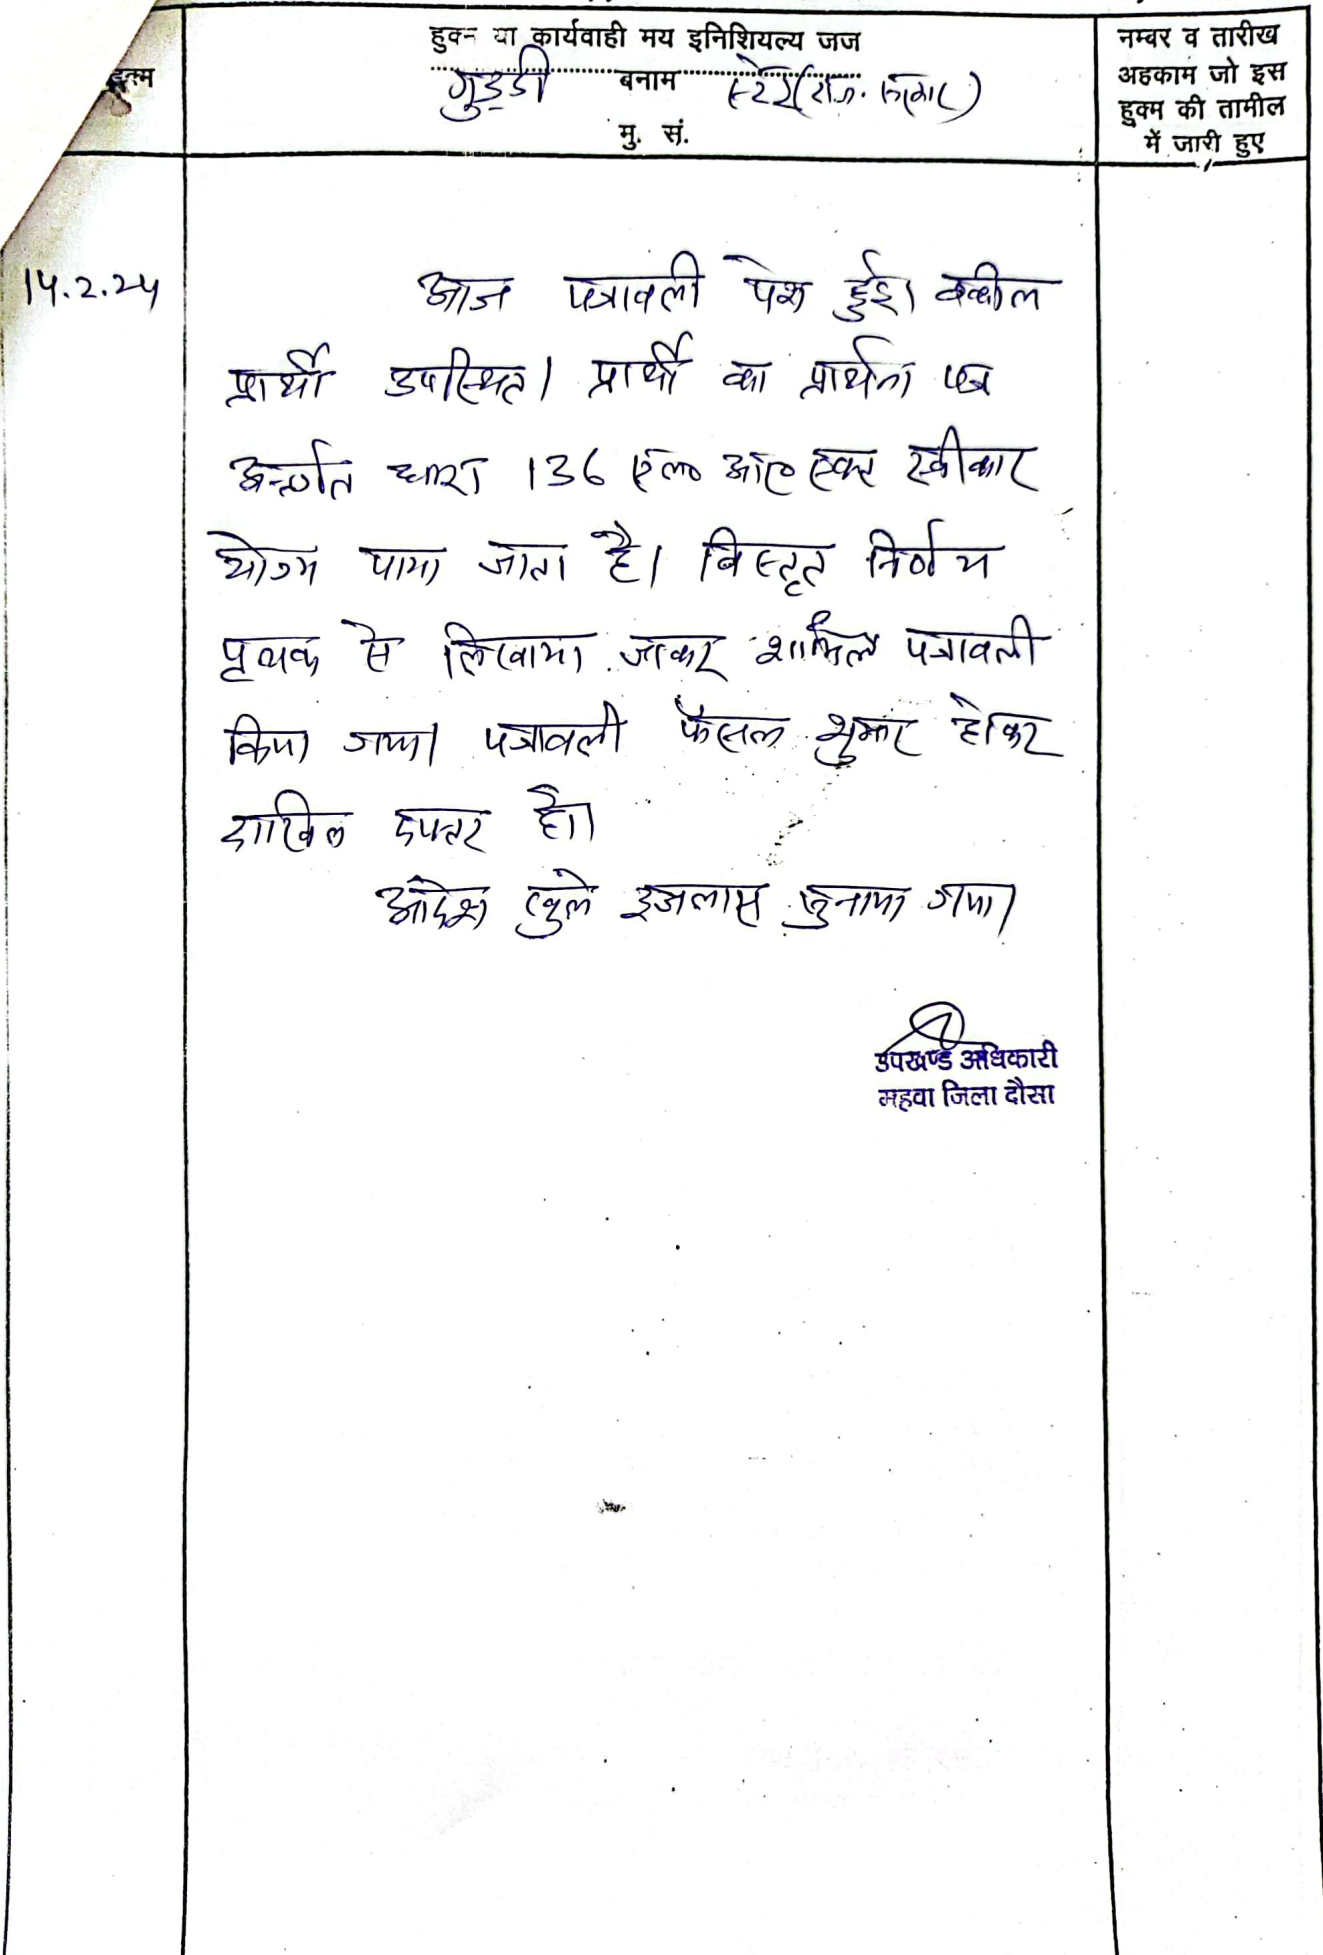 हुक्म या कार्यवाही मय इनिशियल्य जज
गुड्डी बनाम स्टेट (राज. सरकार)
मु. सं.
नम्बर व तारीख
अहकाम जो इस
हुक्म की तामील
में जारी हुए
हुक्म
14.2.24
आज पत्रावली पेश हुई। वकील
प्रार्थी उपस्थित। प्रार्थी का प्रार्थना पत्र
अन्तर्गत धारा 136 एल० आर० एक्ट स्वीकार
योग्य पाया जाता है। विस्तृत निर्णय
पृथक से लिखाया जाकर शामिल पत्रावली
किया गया। पत्रावली फैसल शुमार होकर
दाखिल दफ्तर हो।
आदेश खुले इजलास सुनाया गया।
उपखण्ड अधिकारी
महवा जिला दौसा